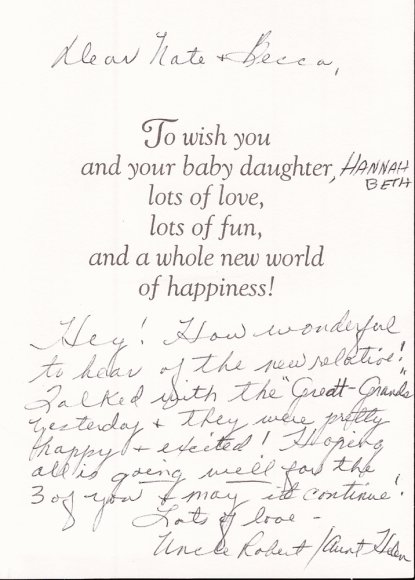 Dear Nate + Becca,
To wish you
and your baby daughter, HANNAH
BETH
lots of love,
lots of fun,
and a whole new world
of happiness!
Hey! How wonderful
to hear of the new relative!
Talked with the "Great-Grands"
yesterday & they were pretty
happy + excited! Hoping
all is going well for the
3 of you & may it continue!
Lots of love -
Uncle Robert/Aunt Helen